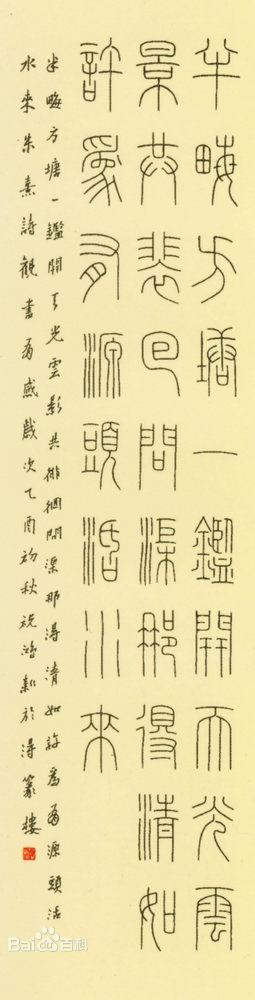 半畮方塘一鑑開天光雲
景共裴回問渠那得清如
許爲有源頭活水來
半畮方塘一鑑開天光雲影共徘徊問渠那淂清如許爲有源頭活
水來朱熹詩觀書有感歲次乙酉初秋祝鴻於淂篆樓
Bai百科